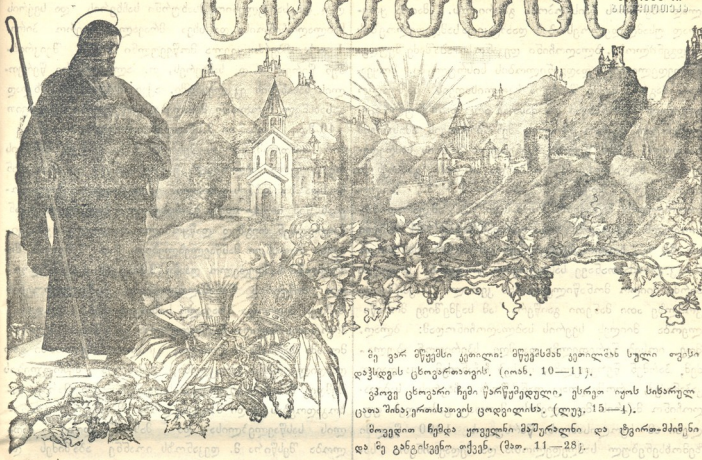 მწყემსი
მე ვარ მწყემსი კეთილი: მწყემსმან კეთილმან სული თვისი
დაჰსდვის ცხოვართათვის. (იოან. 10—11).
ვპოვე ცხოვარი ჩემი წარწყმედული. ესრეთ იყოს სიხარულ
ცათა შინა, ერთისათვის ცოდვილისა. (ლუკ. 15—4).
მოვედით ჩემდა ყოველნი მაშურალნი და ტვირთ-მძიმენი
და მე განგისვენო თქვენ. (მათ. 11—28).